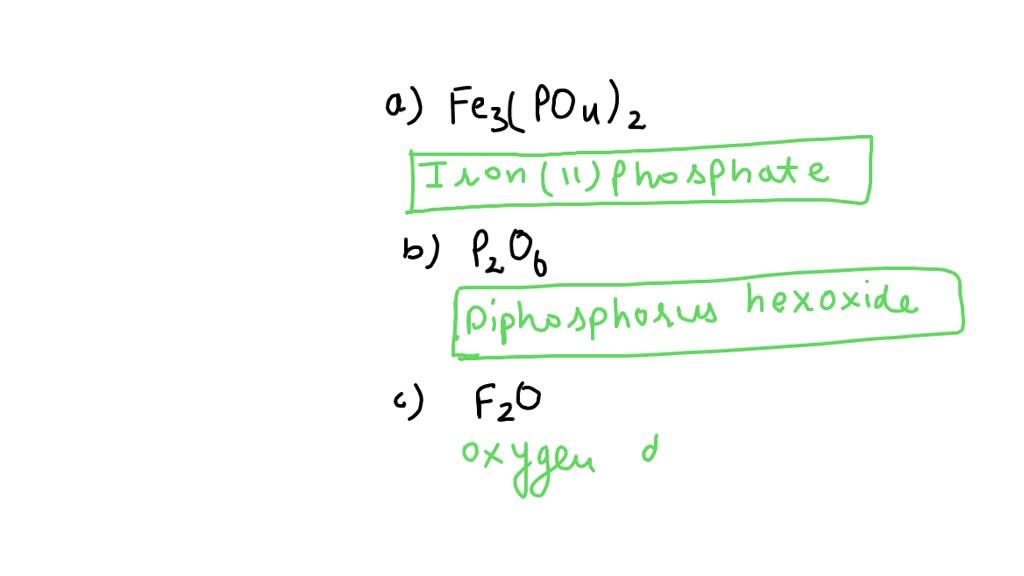 a) Fe3(PO4)2
Iron (II) phosphate
b) P2O6
Diphosphorus hexoxide
c) F2O
oxygen d